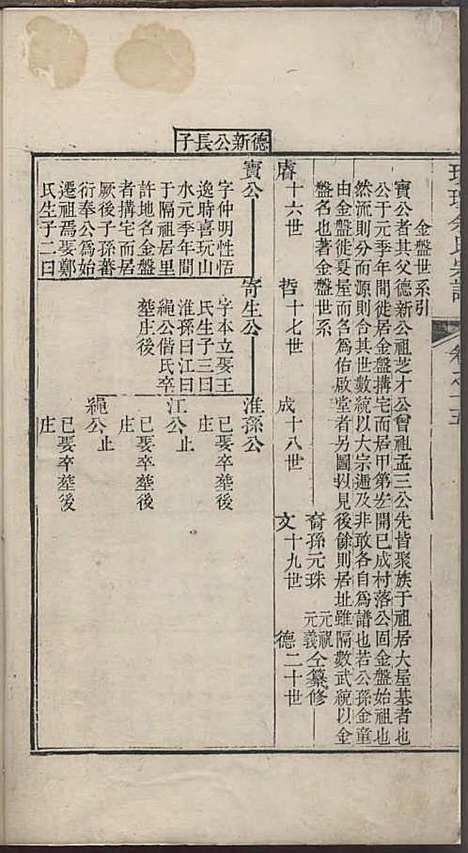 金盤世系引
寶公者其父德新公祖芝才公曾祖孟三公先皆聚族于祖居大屋基者也
公于元季年間徙居金盤搆宅而居甲第宏開已成村落公固金盤始祖也
然流則分而源則合其世數統以大宗遞及非敢各自為譜也若公孫金童
由金盤徙夏屋而名為佑啟堂者另圖以見後餘則居址雖隔數武統以金
盤名也著金盤世系
裔孫元珠 元視 元義 仝纂修
膺十六世
哲十七世
成十八世
文十九世
德二十世
德新公長子
寶公
字仲明性恬
逸時喜玩山
水元季年間
于隔祖居里
許地名金盤
者搆宅而居
厥後子孫蕃
衍奉公為始
遷祖焉娶鄭
氏生子二曰
寄生公
字本立娶王
氏生子三曰
淮孫曰江曰
繩公偕氏卒
塟庄後
淮孫公
已娶卒塟後
庄
江公止
已娶卒塟後
庄
繩公止
已娶卒塟後
庄
余氏宗譜
卷之十五